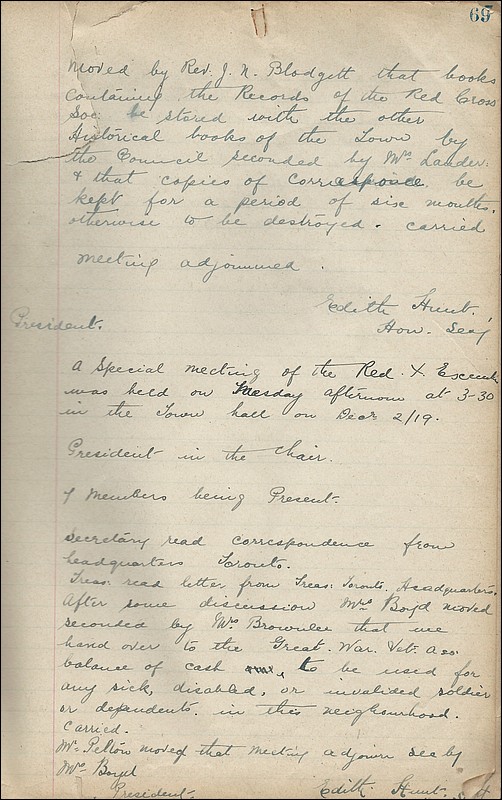 69
Moved by Rev. J. N. Blodgett that books
containing the Records of the Red Cross
Soc: be stored with the other
Historical books of the Town by
the Council seconded by Mrs Lauder.
& that copies of Correspondce be
kept for a period of six months.
otherwise to be destroyed. carried
Meeting adjourned.
Edith Hunt,
Hon. Secy
President.
A Special meeting of the Red X
was held on Tuesday afternoon at 3-30
in the Town hall on Decr 2/19.
President in the Chair.
7 Members being Present.
Secretary read correspondence from
headquarters Toronto.
Treas: read letter from Treas: Toronto. Headquarters.
After some discussion Mrs Boyd moved
seconded by Mrs Brownlee that we
hand over to the Great. War. Vet. Ass:
balance of cash to be used for
any sick, disabled, or invalided soldier
or dependents. in this neighourhood.
Carried.
Mrs Pelton moved that meeting adjourn sec by
Mrs Boyd
President.
Edith Hunt